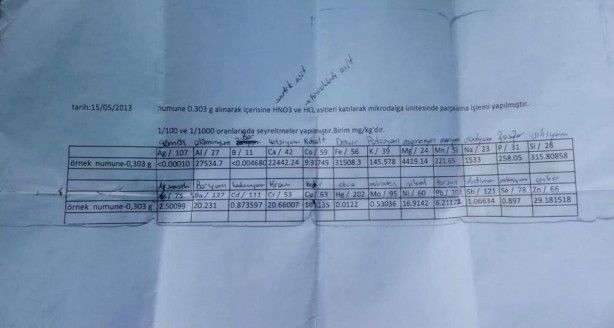 nitrik asit
hidroklorik asit
tarih:15/05/2013 numune 0.303 g alınarak içerisine HNO3 ve HCL asitleri katılarak mikrodalga ünitesinde parçalama işlemi yapılmıştır.
1/100 ve 1/1000 oranlarında seyreltmeler yapılmıştır.Birim mg/kg'dır.
gümüş alüminyum kalsiyum Kobalt Demir Potasyum magnezyum sodyum fosfor silisyum
Ag / 107 Al / 27 B / 11 Ca / 42 Co / 59 Fe / 56 K / 39 Mg / 24 Mn / Na / 23 P / 31 Si / 28
örnek numune-0,303 g <0.00010 27534.7 <0.004680 22442.24 31508.3 145.578 4419.14 221.65 1533 258.05 315.80858
Baryum Krom civa nikel
/ 75 Ba / 137 Cd / 111 Cr / 53 Cu / 63 Hg / 202 Mo / 95 Ni / 60 Pb / Sb / 121 Se / 78 Zn / 66
örnek numune-0,303 g 2.50099 20.231 0.873597 20.66007 0.0122 0.53036 16.9142 1.06634 0.897 29.181518